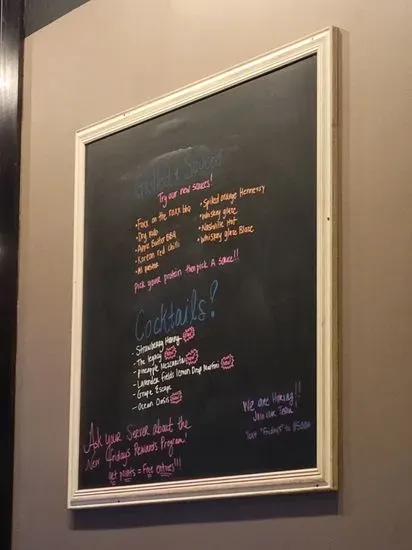 Grilled & Sauced
Try our new sauces!
• Foxx on the Roxx bbq
• Dry Rub
• Apple Butter BBQ
• Korean red chili
• Al pastor
• Spiked orange Hennessy
• Whiskey glaze
• Nashville Hot
• Whiskey glaze Blaze
Pick your protein then pick A sauce!!
Cocktails?
- Strawberry Henny
- The legacy
- pineapple Mezcalrita
- Lavender Fields Lemon Drop Martini
- Grape Escape
- Ocean Oasis
Ask your Server about the
New Fridays Rewards Program!
get points = Free entrées!!!
We are Hiring!!
Join our Team
Text "Fridays" to